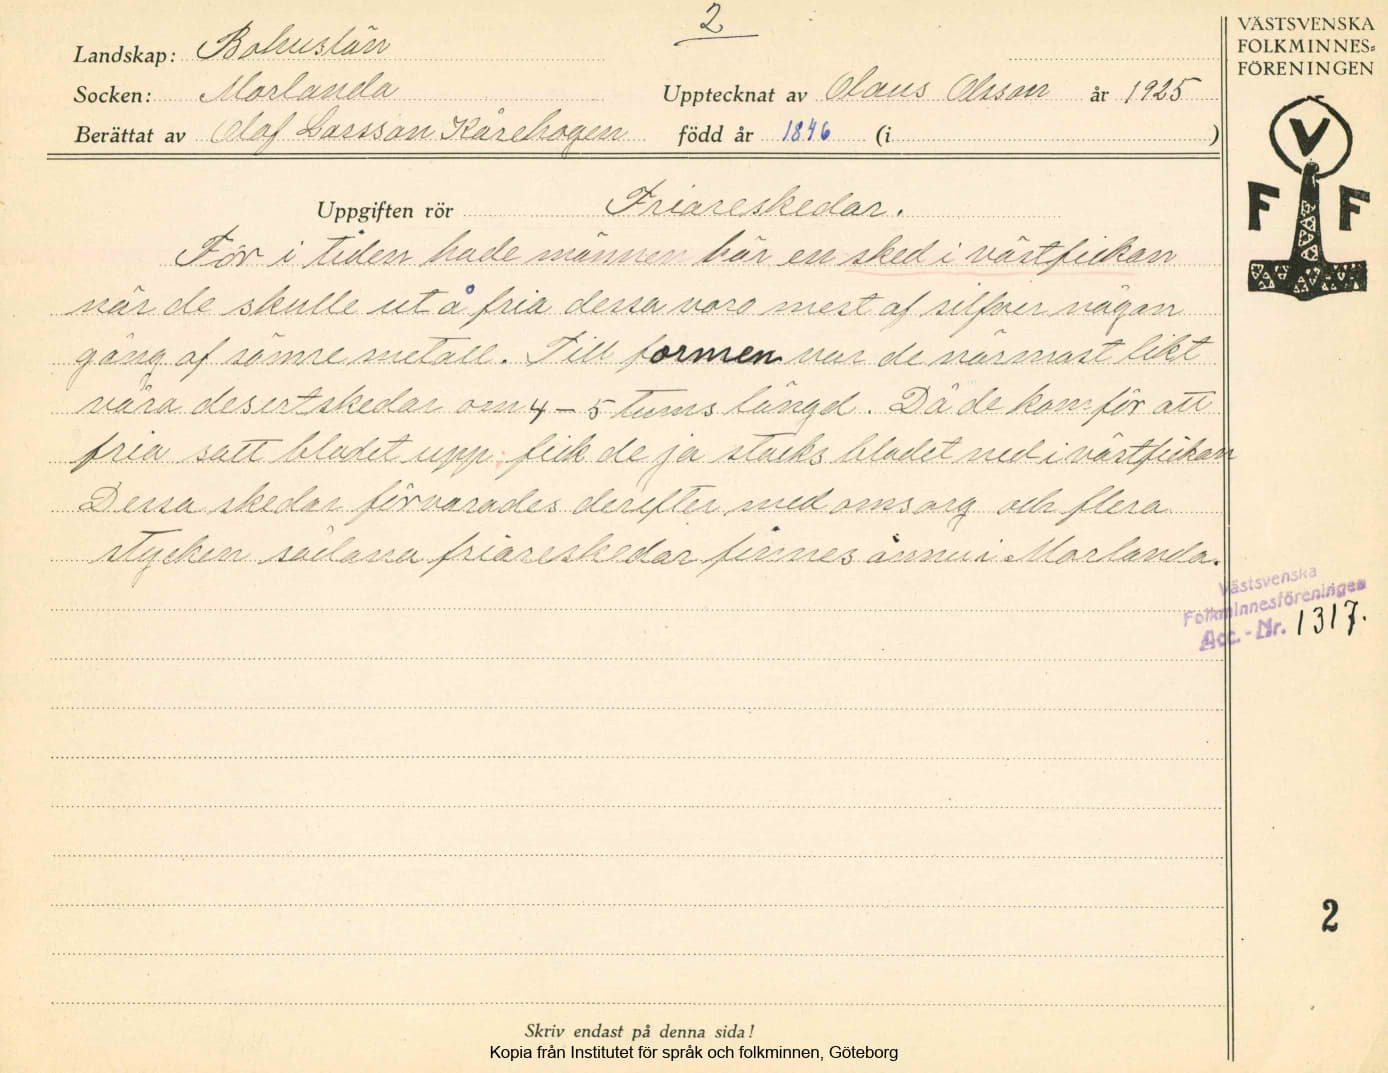 2
Landskap: Bohuslän
Socken: Morlanda
Upptecknat av Olaus Olsson år 1925
Berättat av Olof Larsson Kårehogen född år 1846 (i )
VÄSTSVENSKA
FOLKMINNES=
FÖRENINGEN
V
F F
Uppgiften rör Friareskedar.
För i tiden hade männen här en sked i västfickan
när de skulle ut å fria dessa voro mest af silfver någon
gång af sämre metall. Till formen var de närmast likt
våra desertskedar om 4 – 5 tums längd. Då de kom för att
fria satt bladet upp, fick de ja stacks bladet ned i västfickan
Dessa skedar förvarades derefter med omsorg och flera
stycken sådana friareskedar finnes ännu i Morlanda.
Västsvenska
Folkminnesföreningen
Acc. - Nr. 1317.
2
Skriv endast på denna sida!
Kopia från Institutet för språk och folkminnen, Göteborg